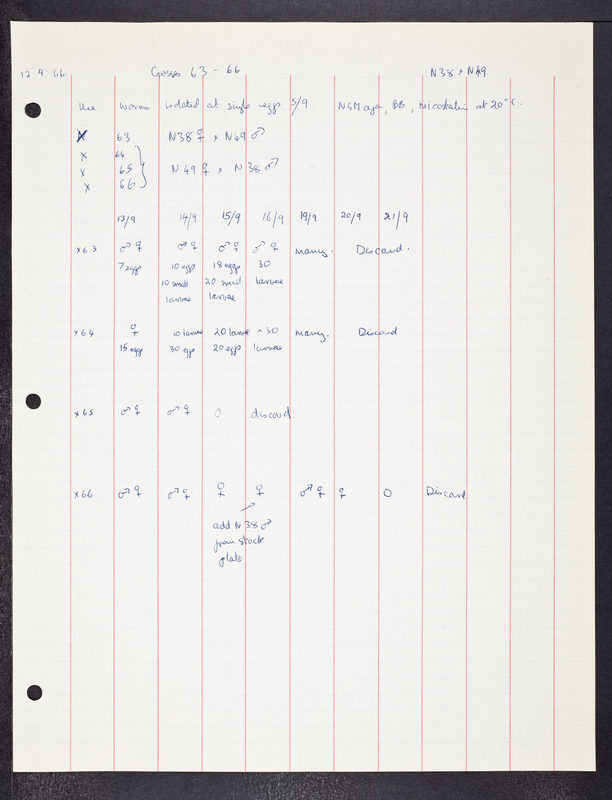 12.9.66 Crosses 63 - 66 N38 x N49
Use worms isolated at single eggs 5/9. NGM agar, BB, Nicostatin at 20°C.
x 63 N38 ♀ x N49 ♂
x 64
x 65 N49 ♀ x N38 ♂
x 66
13/9 14/9 15/9 16/9 19/9 20/9 21/9
x63 ♂ ♀ ♂ ♀ ♂ ♀ ♂ ♀ many. Discard.
7 eggs 10 eggs 18 eggs 30
10 small 20 small larvae
larvae larvae
x64 ♀ 10 larvae 20 larvae ~30 many. Discard
15 eggs 30 eggs 20 eggs larvae
x65 ♂ ♀ ♂ ♀ 0 discard
x66 ♂ ♀ ♂ ♀ ♀ ♀ ♂ ♀ ♀ 0 Discard
add N38 ♂
from stock
plate